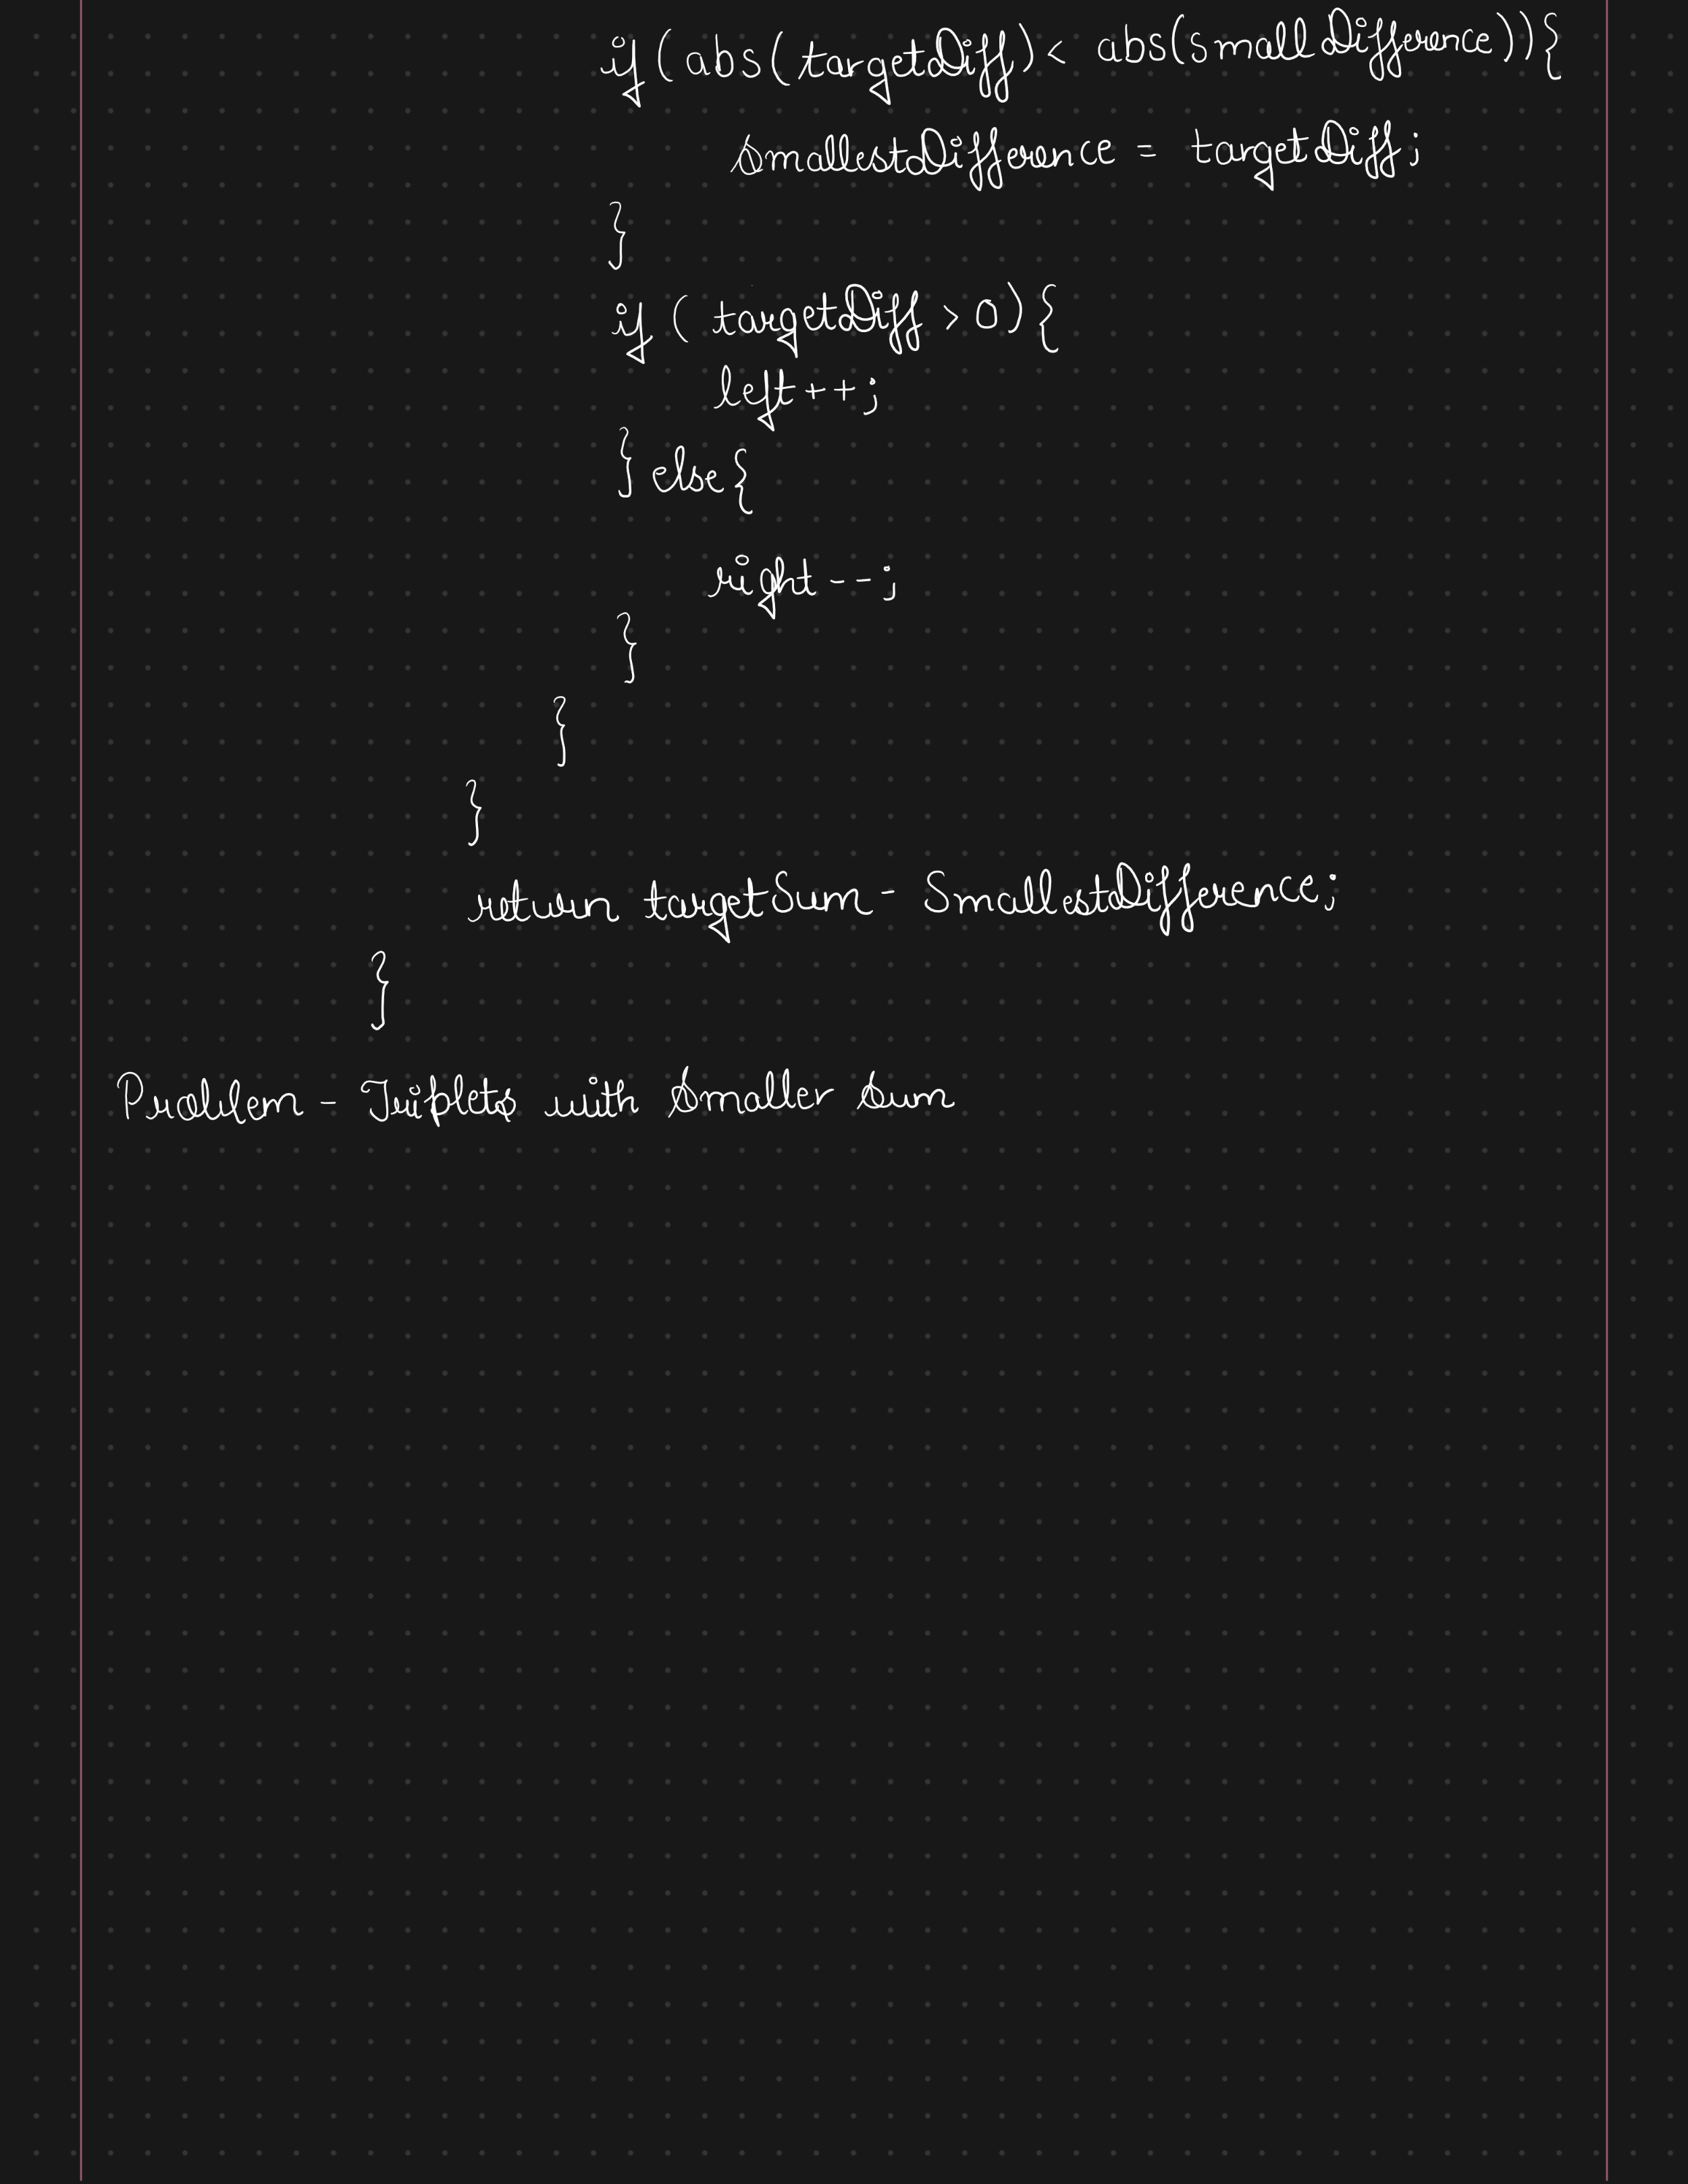 if (abs(targetDiff) < abs(smallDifference)){
smallestDifference = targetDiff;
}
if (targetDiff > 0) {
left++;
} else {
right--;
}
}
}
return targetSum - SmallestDifference;
}
Problem - Triplets with smaller sum